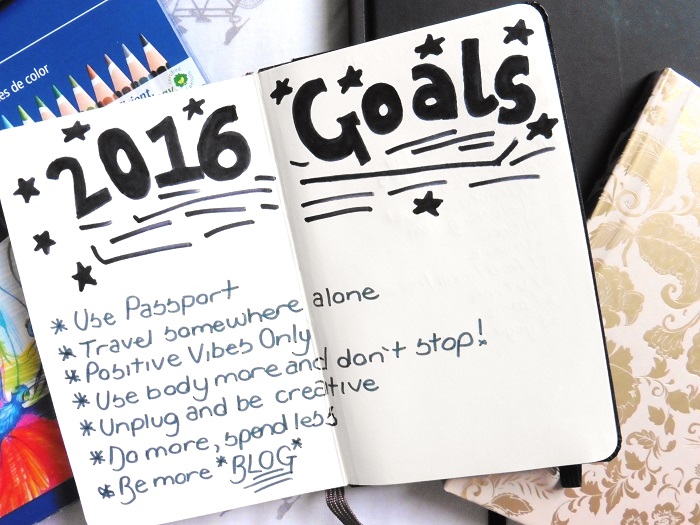 es de color
2016 Goals
* Use Passport
* Travel somewhere alone
* Positive Vibes Only
* Use body more and don't stop!
* Unplug and be creative
* Do more, spend less
* Be more *BLOG*